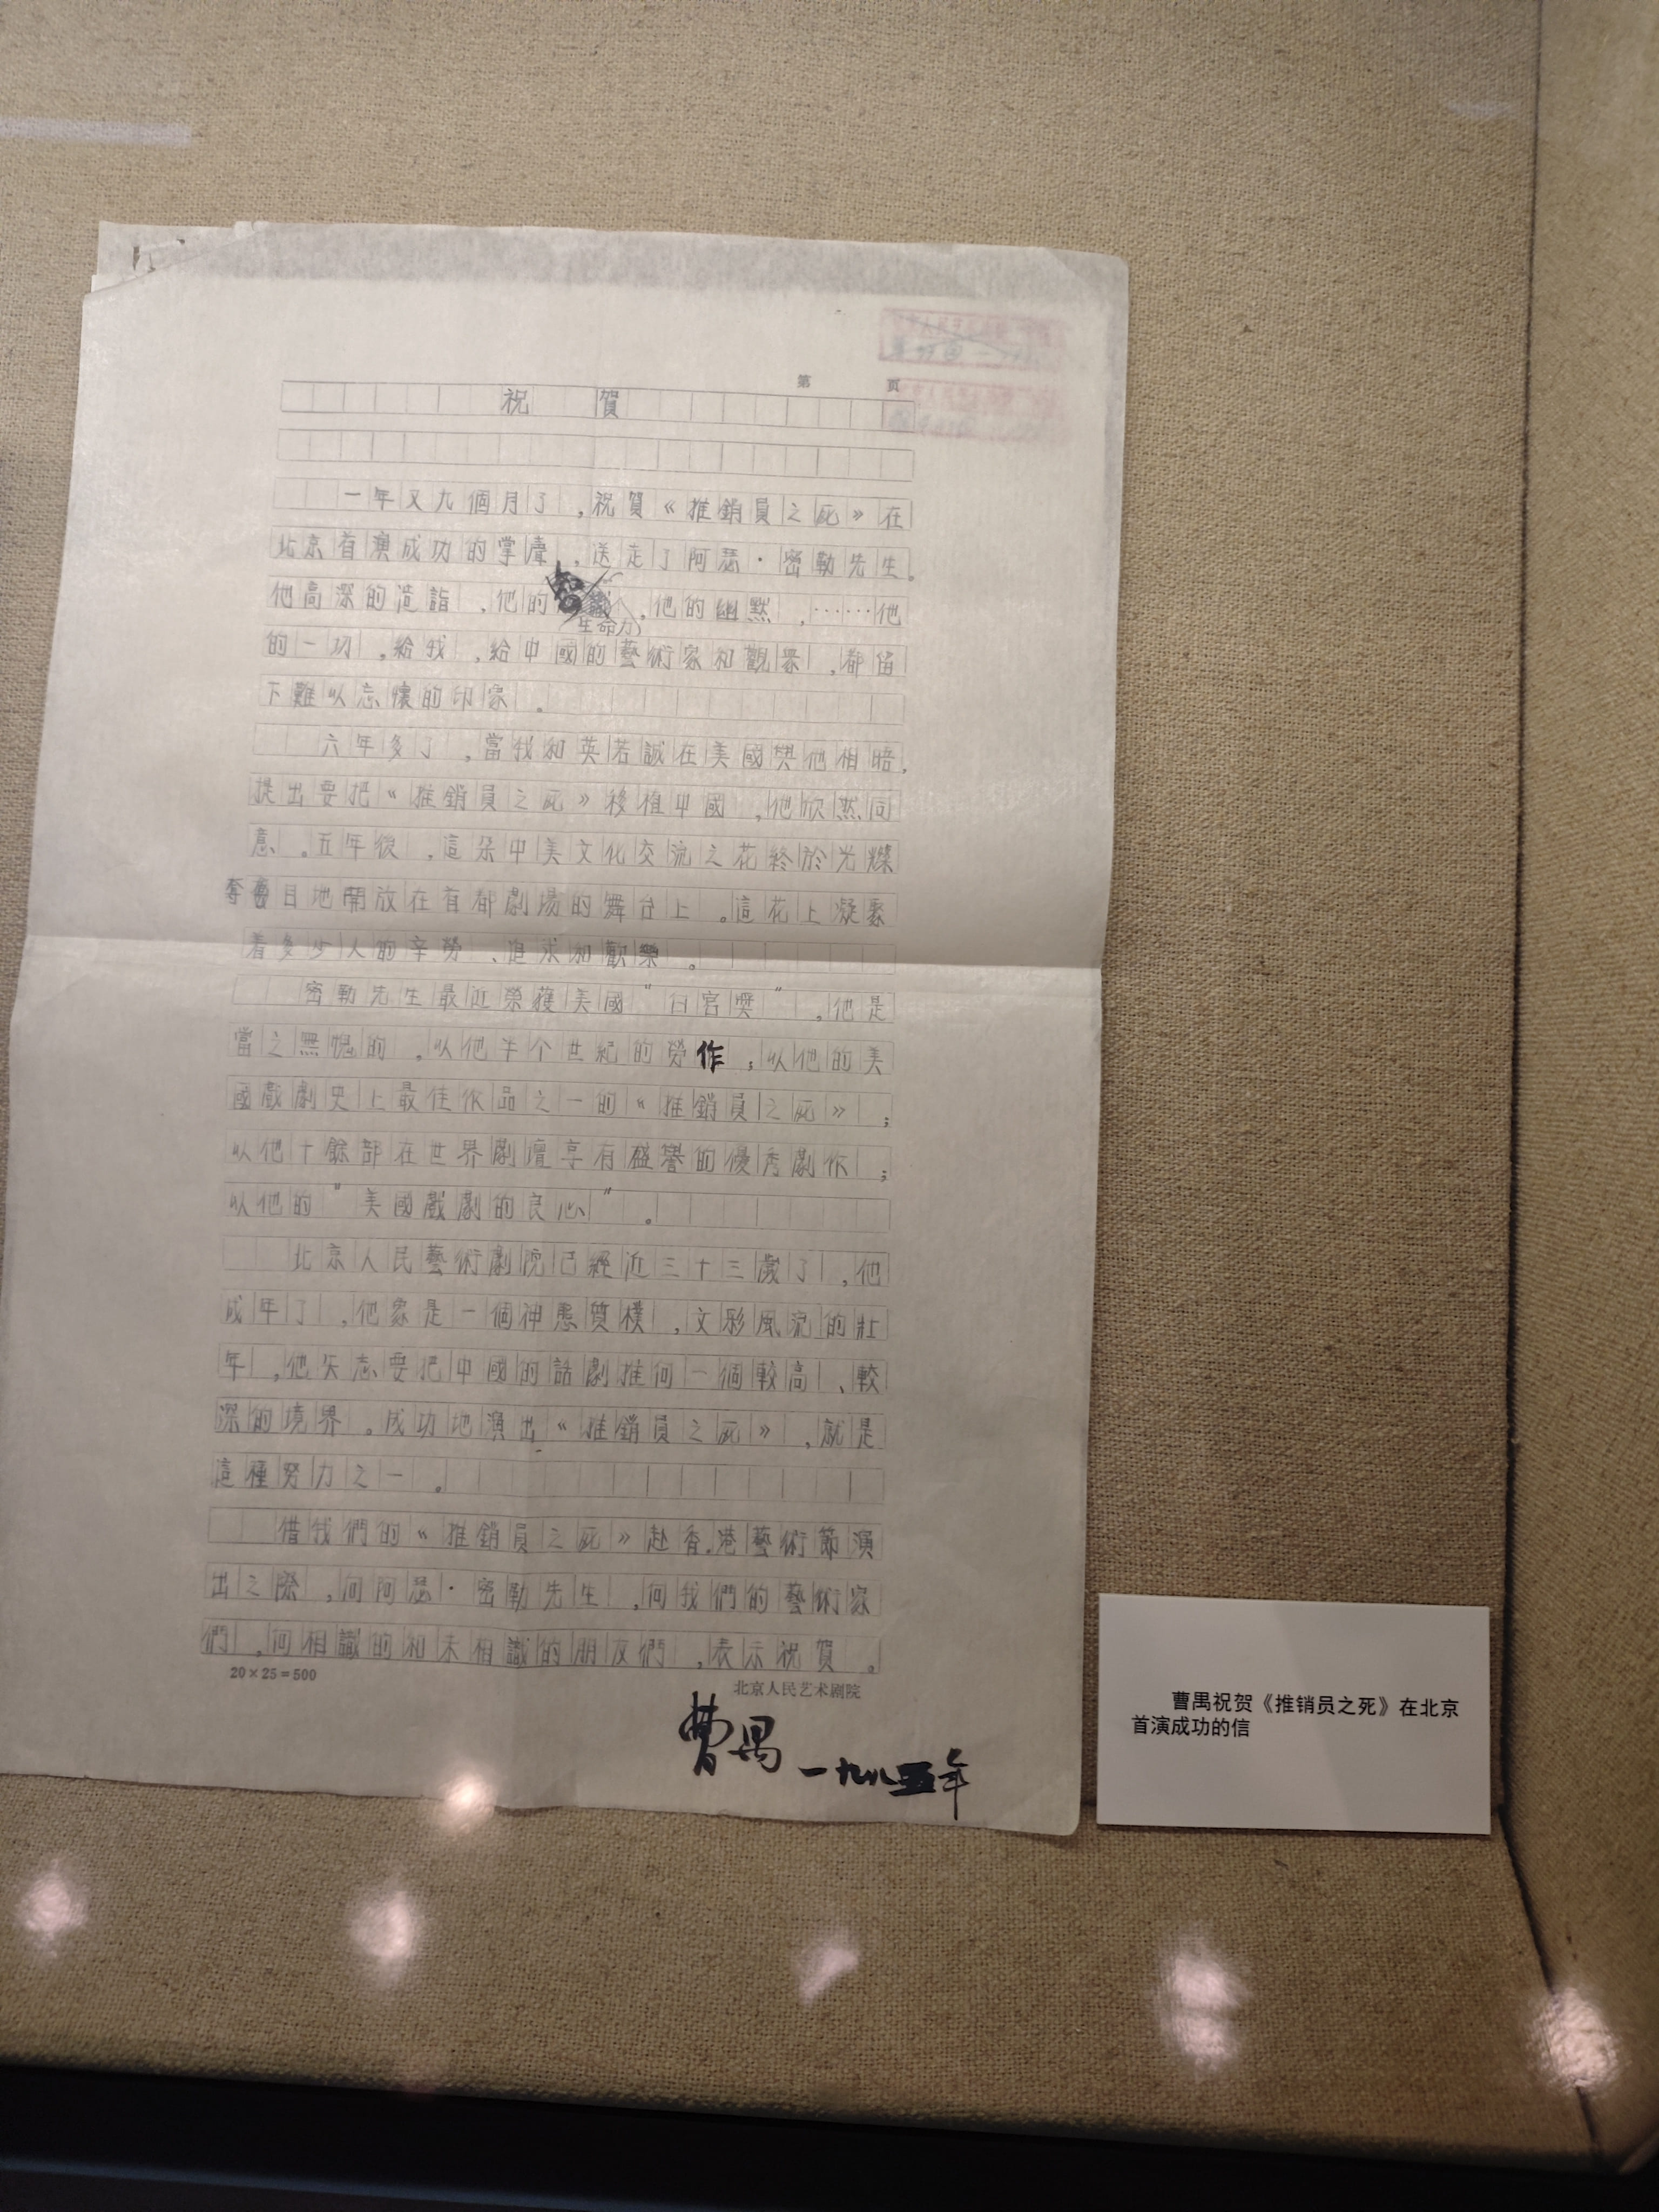 第 页
祝 賀
一年又九個月了，祝賀《推銷員之死》在
北京首演成功的掌聲，送走了阿瑟·密勒先生。
他高深的造詣，他的生命力，他的幽默，……他
的一切，給我，給中國的藝術家和觀眾，都留
下難以忘懷的印象。
六年多了，當我和英若誠在美國與他相晤，
提出要把《推銷員之死》移植中國，他欣然同
意。五年後，這朵中美文化交流之花終於光燦
奪目地開放在首都劇場的舞台上。這花上凝聚
着多少人的辛勞、追求和歡樂。
密勒先生最近榮獲美國“白宮獎”，他是
當之無愧的。以他半个世紀的勞作；以他的美
國戲劇史上最佳作品之一的《推銷員之死》；
以他十餘部在世界劇壇享有盛譽的優秀劇作；
以他的“美國戲劇的良心”。
北京人民藝術劇院已經近三十三歲了，他
成年了，他家是一個神態質樸，文彩風流的壯
年，他矢志要把中國的話劇推向一個較高、較
深的境界。成功地演出《推銷員之死》，就是
這種努力之一。
借我們的《推銷員之死》赴香港藝術節演
出之際，向阿瑟·密勒先生，向我們的藝術家
們，向相識的和未相識的朋友們，表示祝賀。
20×25=500
北京人民艺术剧院
曹禺 一九八五年
曹禺祝贺《推销员之死》在北京
首演成功的信